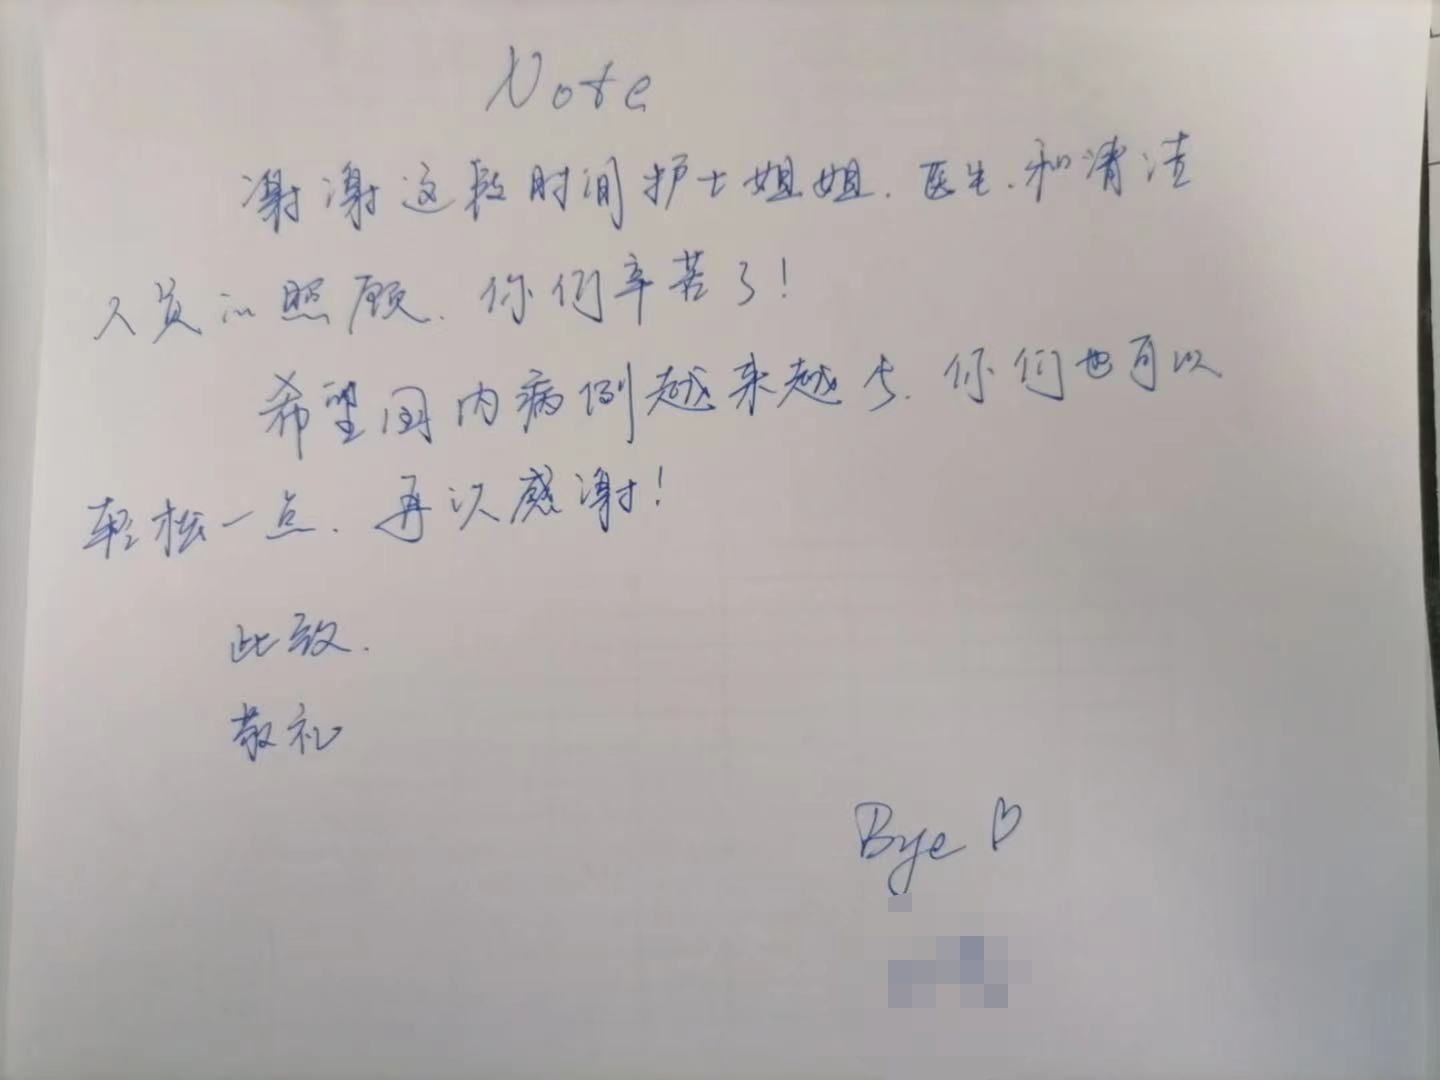 Note
谢谢这段时间护士姐姐.医生.和清洁
人员的照顾.你们辛苦了!
希望国内病例越来越少.你们也可以
轻松一点.再次感谢!
此致.
敬礼
Bye ♡